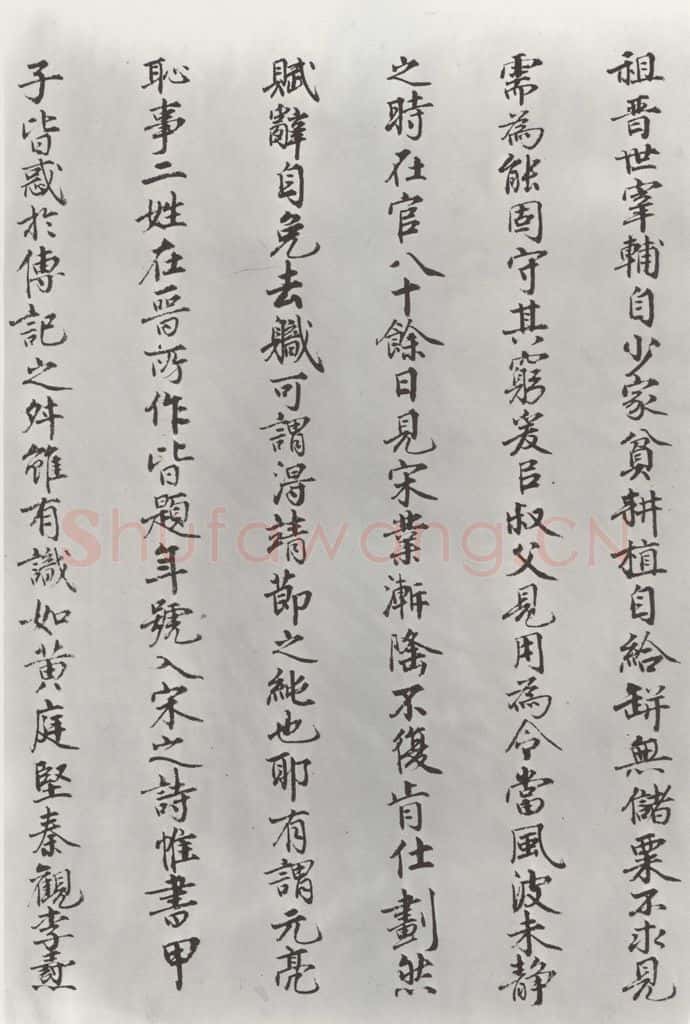 祖晋世宰輔自少家貧耕植自給缾無儲粟不求見
需為能固守其窮爰㠯叔父見用為令當風波未静
之時在官八十餘日見宋業漸隆不復肯仕劃然
賦辭自免去職可謂得靖節之純也耶有謂元亮
恥事二姓在晉所作皆題年號入宋之詩惟書甲
子皆惑於傳記之舛雖有識如黄庭堅秦觀李燾
Shufawang.CN